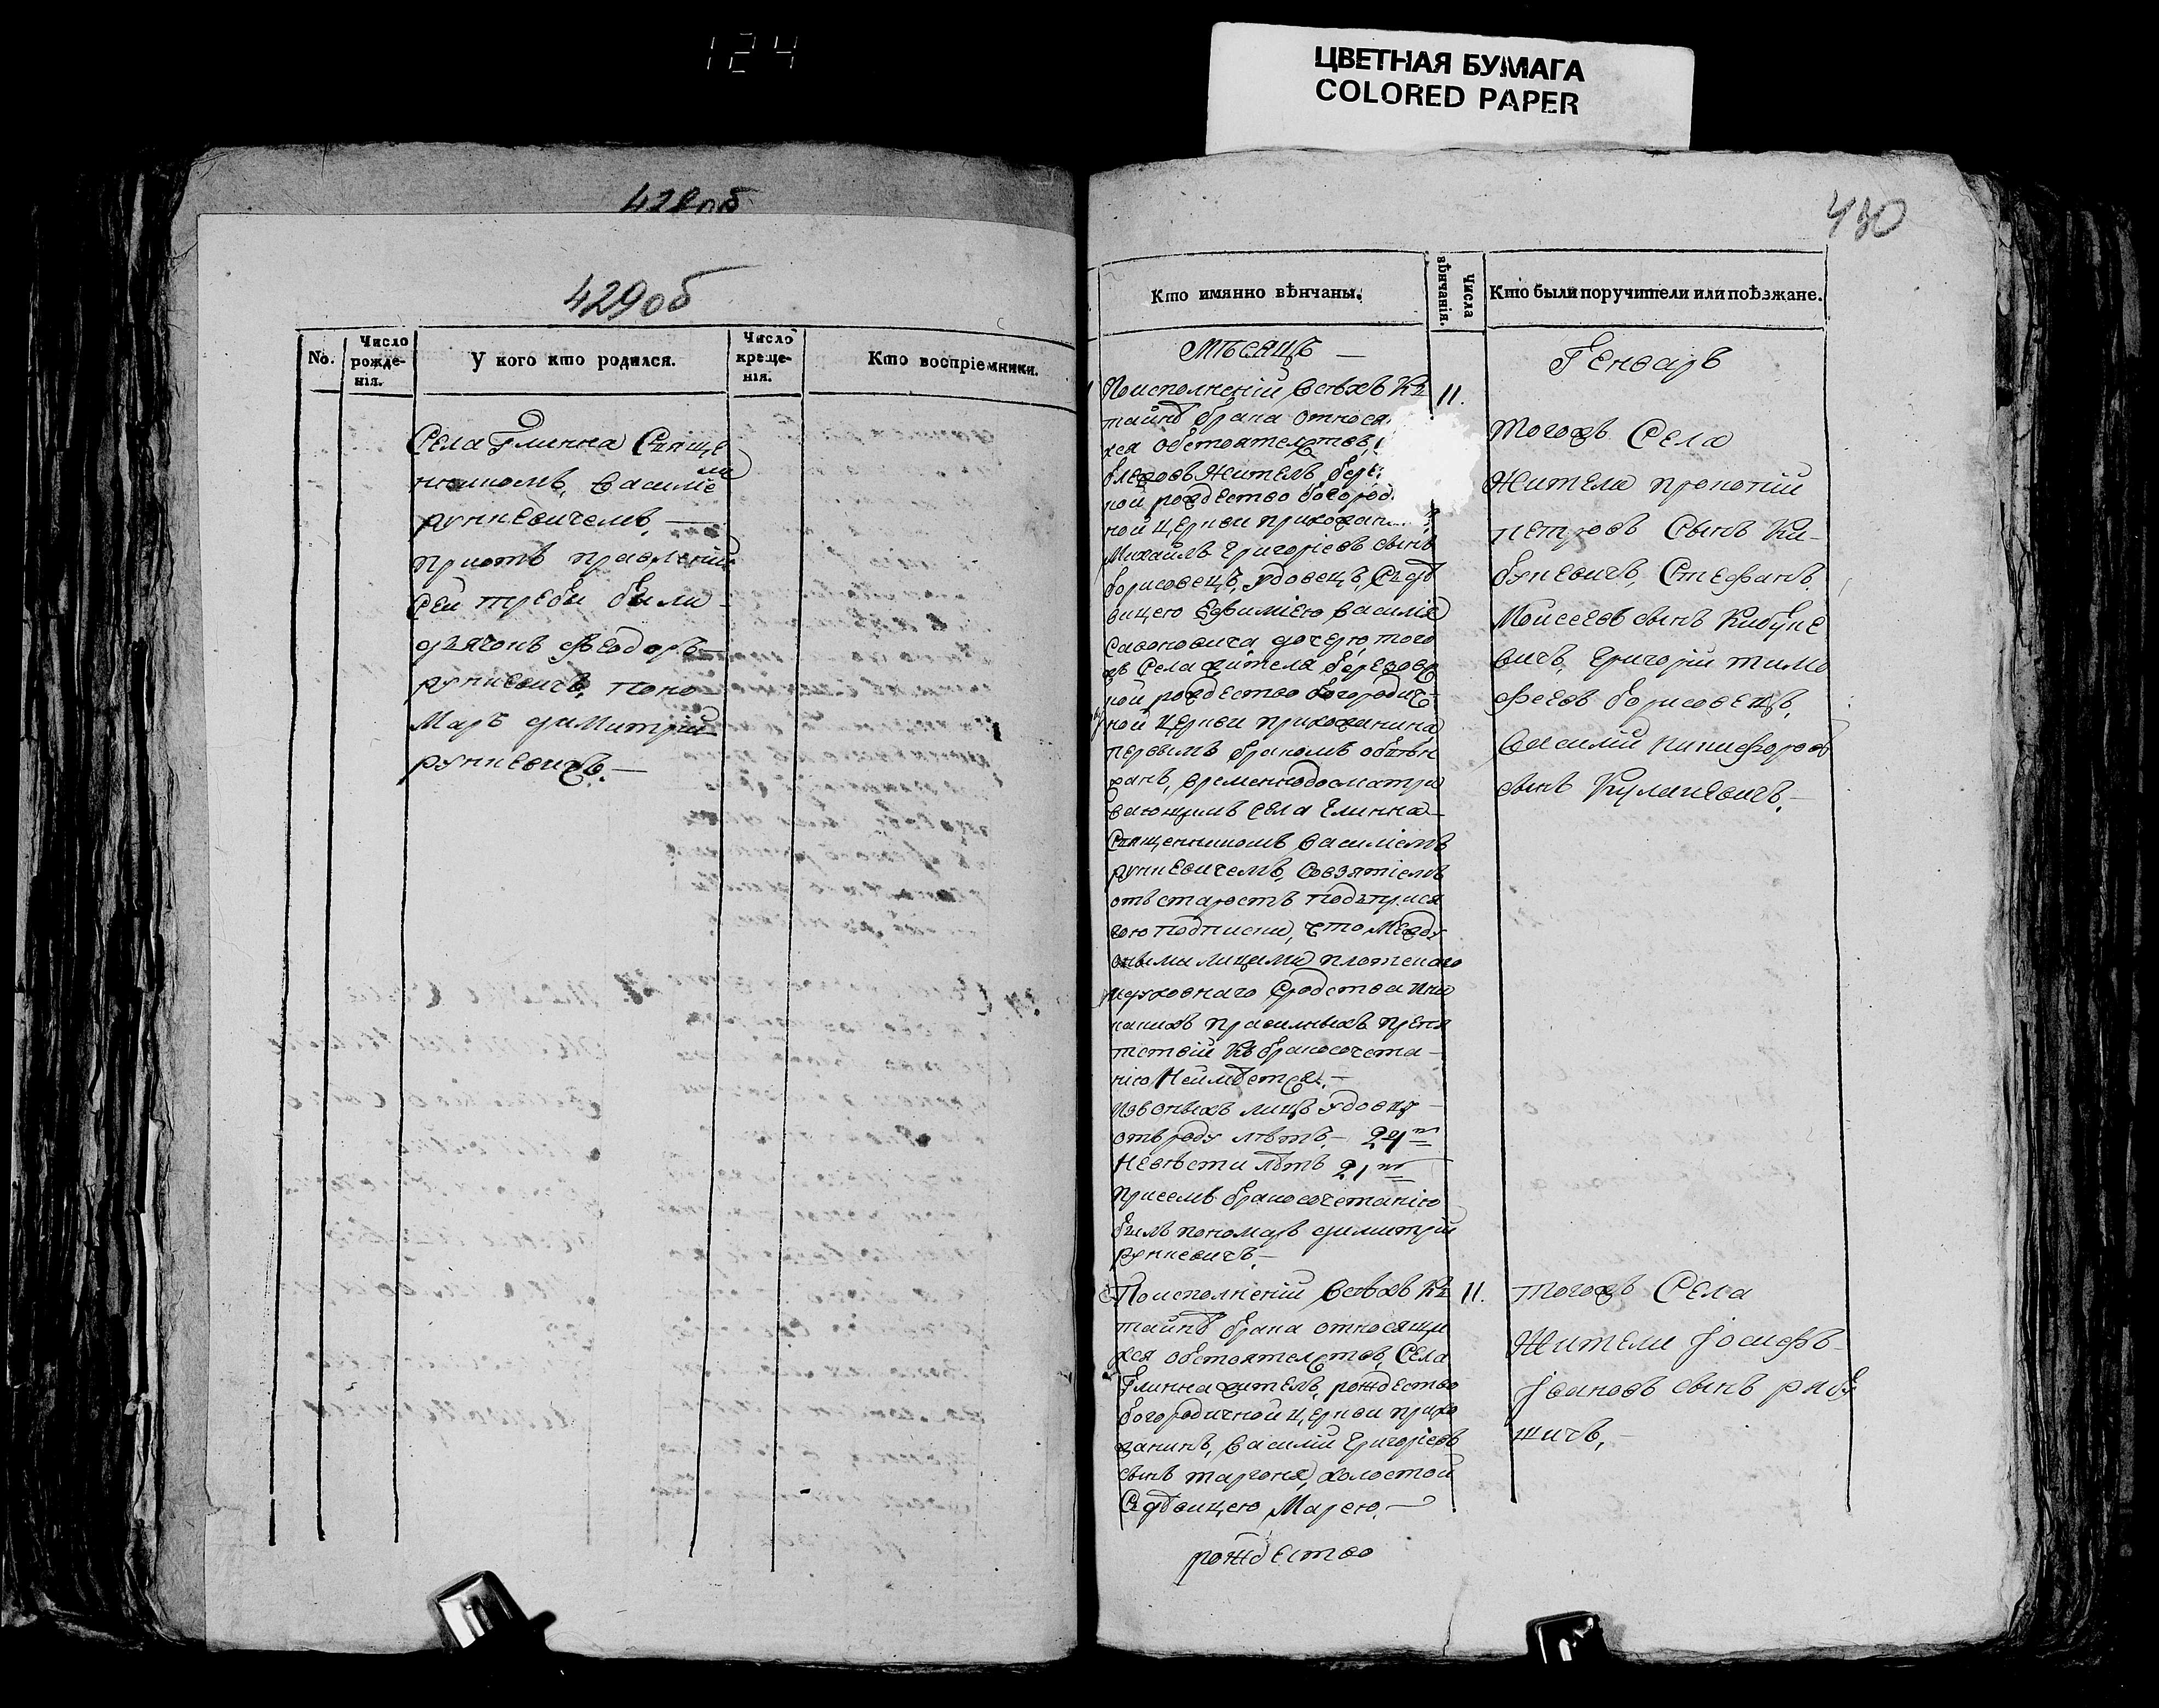 124
ЦВЕТНАЯ БУМАГА
COLORED PAPER
429об
No.
Число рожденія.
У кого кто родился.
Число крещенія.
Кто воспріемники.
Села Глинна Свяще
нникомъ, Василіе
мъ
рункевичемъ,
приотъ правленіи
Сей требы были
дьячокъ Феодоръ
рункевичъ, поно
Маръ димитрій
рункевичъ.
430
Кто имянно вѣнчаны.
Числа вѣнчанія.
Кто были поручители или поѣзжане.
Мѣсяцъ
Генварь
Поисполненіи Всѣхъ Къ
11.
тайнѣ брака относя
хся обстоятелствъ,
Жителъ
ной рождество богород
ной церкви прихожан
Михаилъ Григоріевъ сынъ
борисовецъ, удовецъ, Съдѣ
вицею Ефиміею Василія
дочерю, того
жъ Села жителя
ной рождество богородич
ной церкви прихожанина
первымъ бракомъ обвѣн
чанъ, временнодосматри
вающимъ Села Глинна
Священникомъ Василіемъ
рункевичемъ, Совзятіемъ
отъ старостъ подъприся
гою подписки, что Между
оными лицами плотскаго
идуховнаго Сродства ини
какихъ правилныхъ препя
тствій Къ бракосочета
нію Неимѣется.
Изъ оныхъ лицъ удовцу
отъ роду лѣтъ
Невѣсти лѣтъ 21
Присемъ бракосочетаніи
былъ пономаръ димитрій
рункевичъ.
Тогожъ Села
Жители прокопій
петровъ Сынъ Ки
буневичъ, Стефанъ
Моисеевъ сынъ Кибуне
вичъ, Григорій тимо
феевъ борисовецъ,
Василій никифоровъ
сынъ
Поисполненіи Всѣхъ Къ
11.
тайнѣ брака относящи
хся обстоятелствъ, Села
Глинна жителъ, рождество
богородичной церкви прихо
жанинъ, Василій Григоріевъ
сынъ холостой
Съдѣвицею Марею,
рождество
тогожъ Села
Жители Іосифъ
Івановъ сынъ